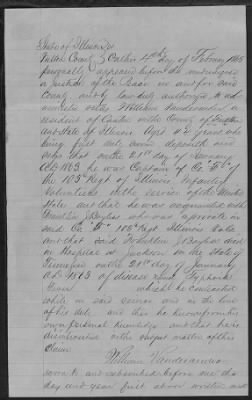 State of Illinois
Fulton County } Canton 4th day of February 1865
personally appeared before the undersigned
a Justice of the Peace in and for said
County and by law duly authorized to ad-
minister oaths William Vandevander a
resident of Canton in the County of Fulton
and State of Illinois Aged 42 years who
being first duly sworn deposeth and
says that on the 21st day of January
A.D. 1863 he was Captain of Co
the 103d Regt of Illinois Infantry
Volunteers in the service of the United
States and that he was acquainted with
Franklin J Bayless who was a private in
said Co 103d Regt Illinois Vols
and that said Franklin J Bayless died
in Hospital at Jackson in the State of
Tennessee on the 21st day of January
A.D. 1863 of disease
Fever which he contracted
while in said service and in the line
of his duty and this he knows from his
own personal knowledge and that he is
disinterested in the
Claim
William Vandevander
sworn to and subscribed before me the
day and year first above written and